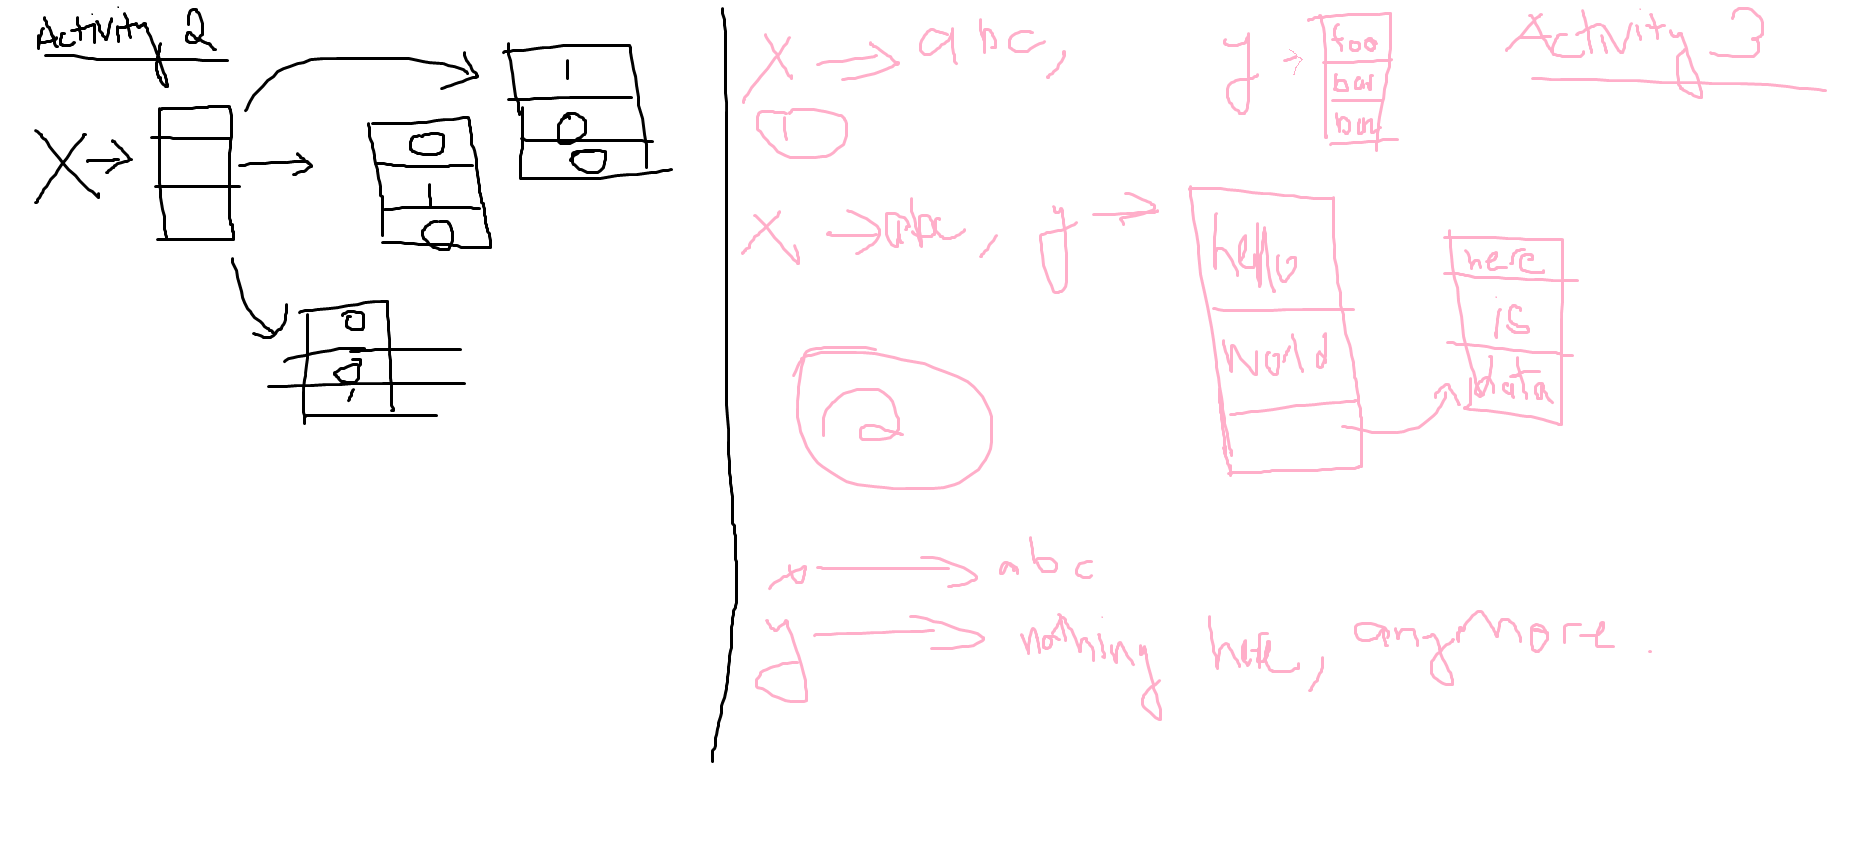 Activity 2
X →
1
0
0
0
1
0
0
0
1
Activity 3
X → abc, y →
foo
bar
bar
1
X → abc, y →
hello
world
here
is
data
2
x → abc
y → nothing here, anymore.